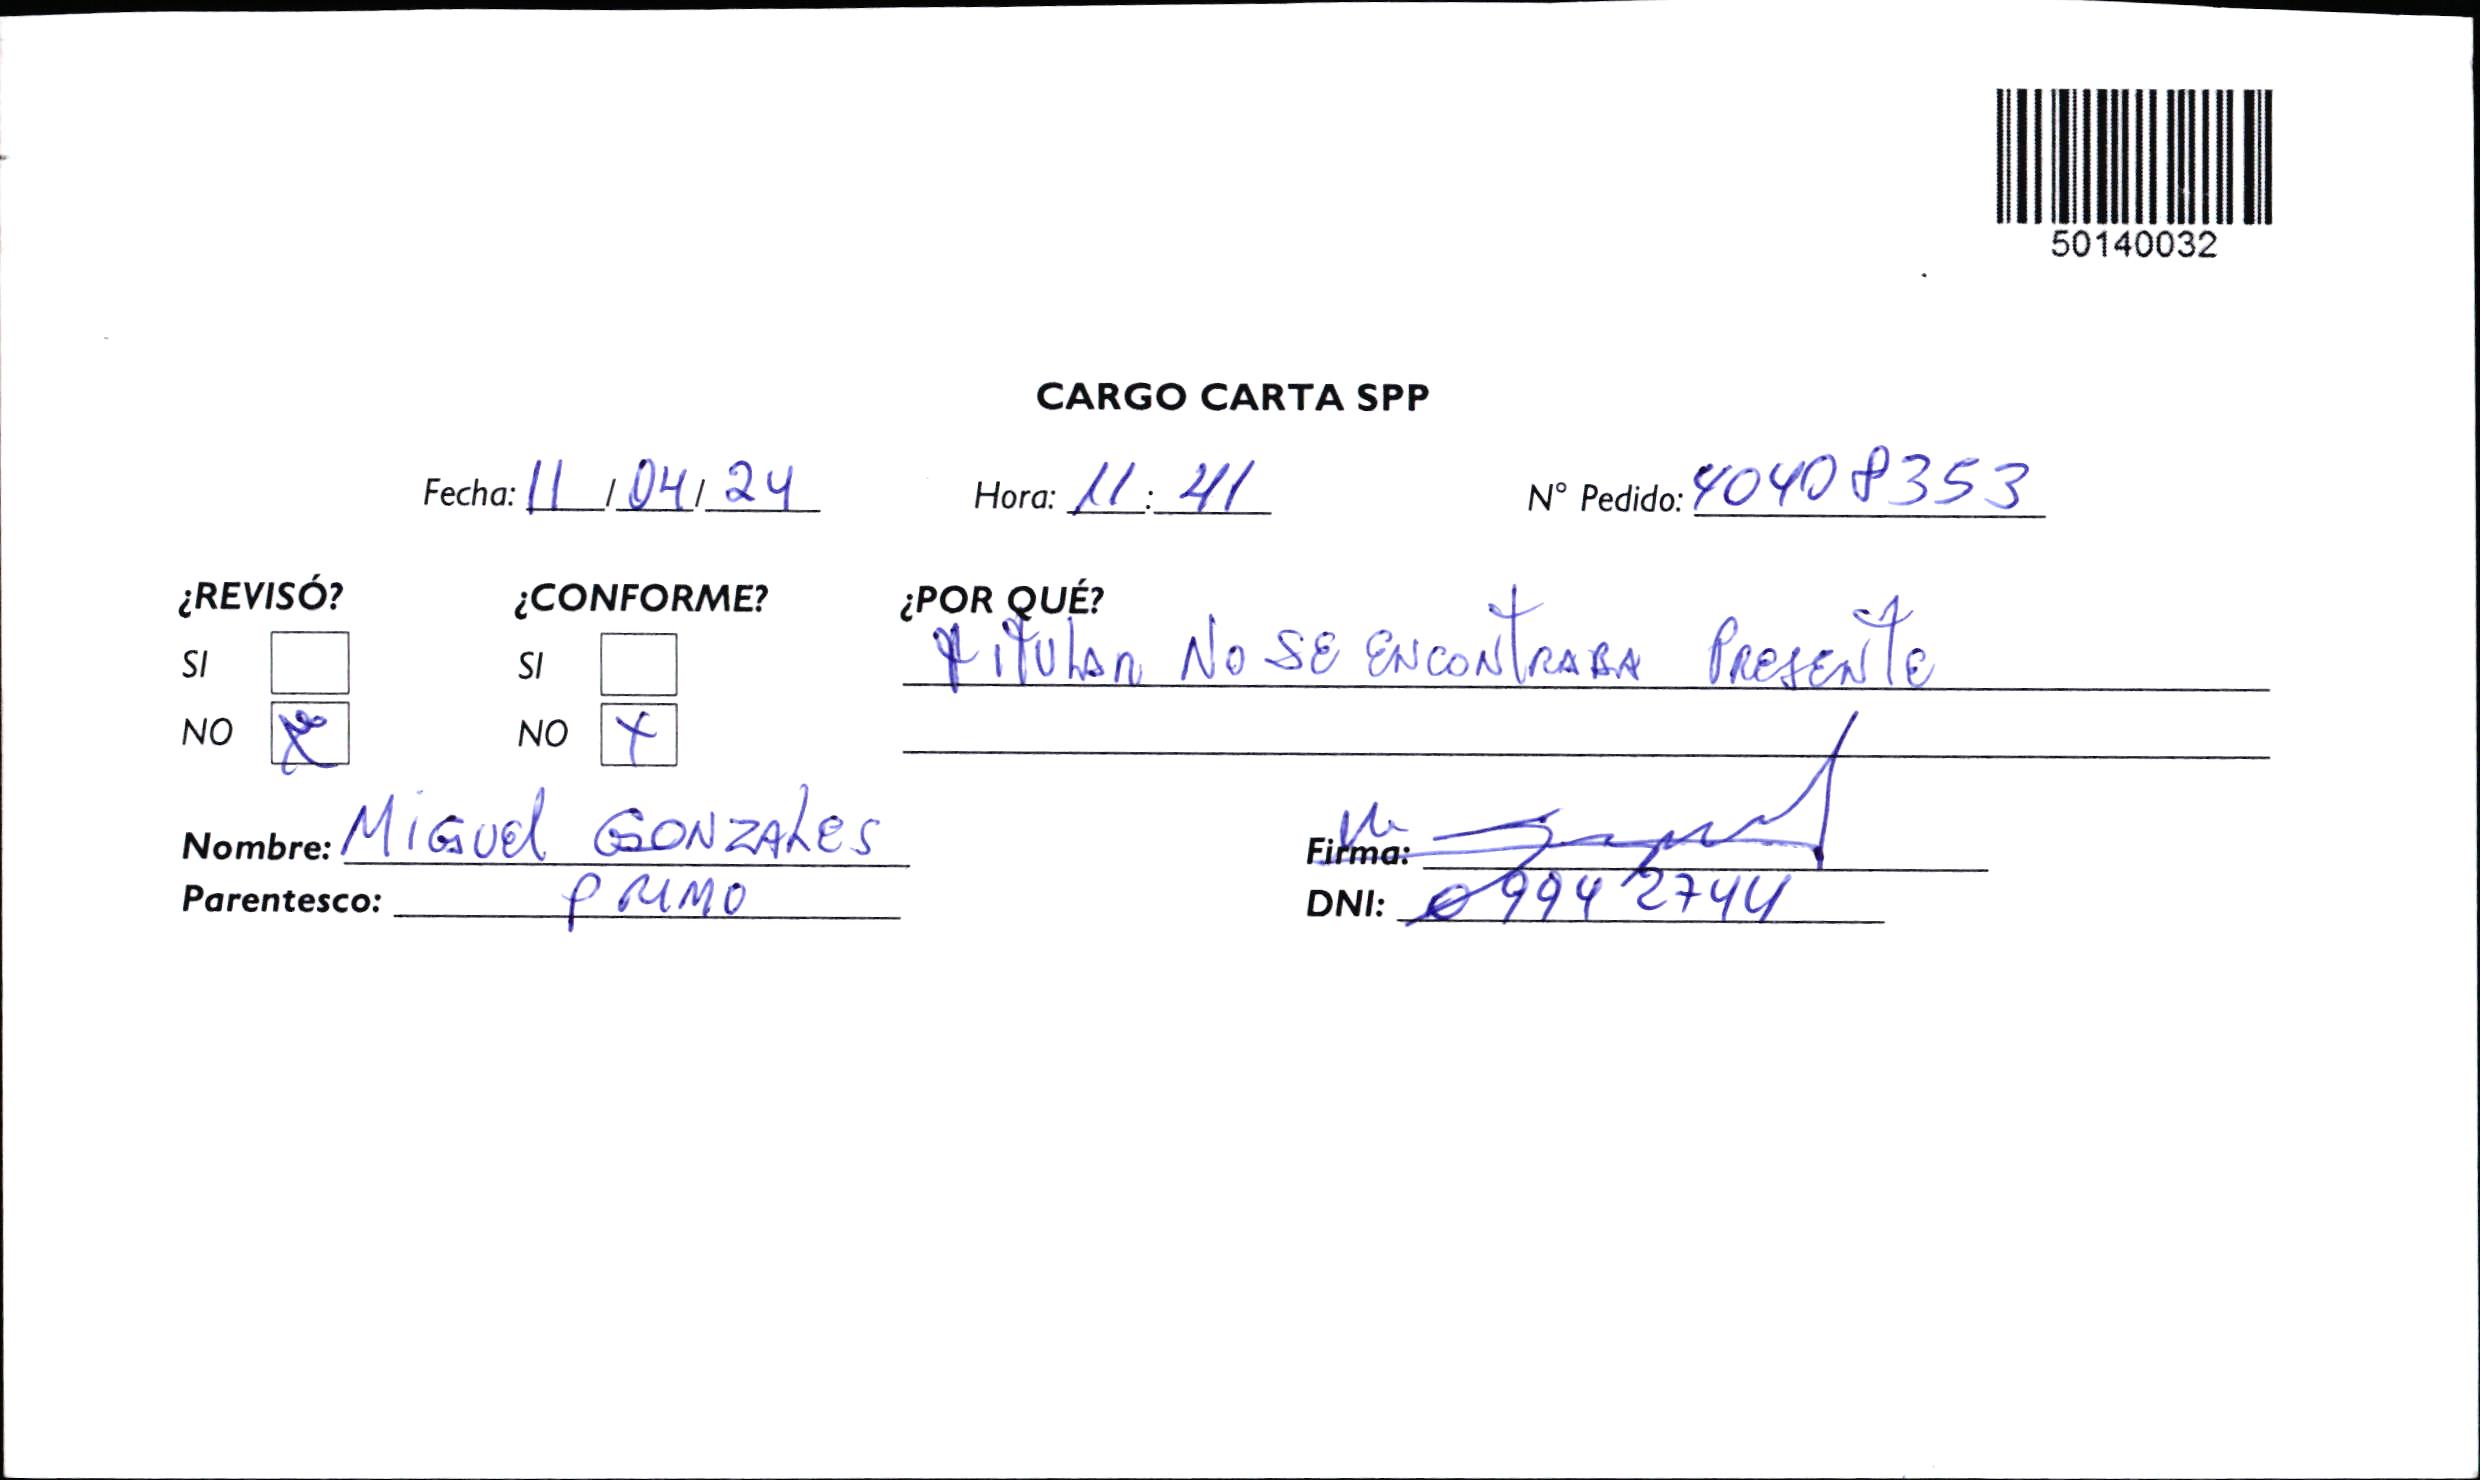 50140032
CARGO CARTA SPP
Fecha: 11/04/24 Hora: 11:41 N° Pedido: 40408353
¿REVISÓ? ¿CONFORME? ¿POR QUÉ?
SI SI TITULAR NO SE ENCONTRABA PRESENTE
NO X NO X
Nombre: MIGUEL GONZALES Firma:
Parentesco: PRIMO DNI: 09942744